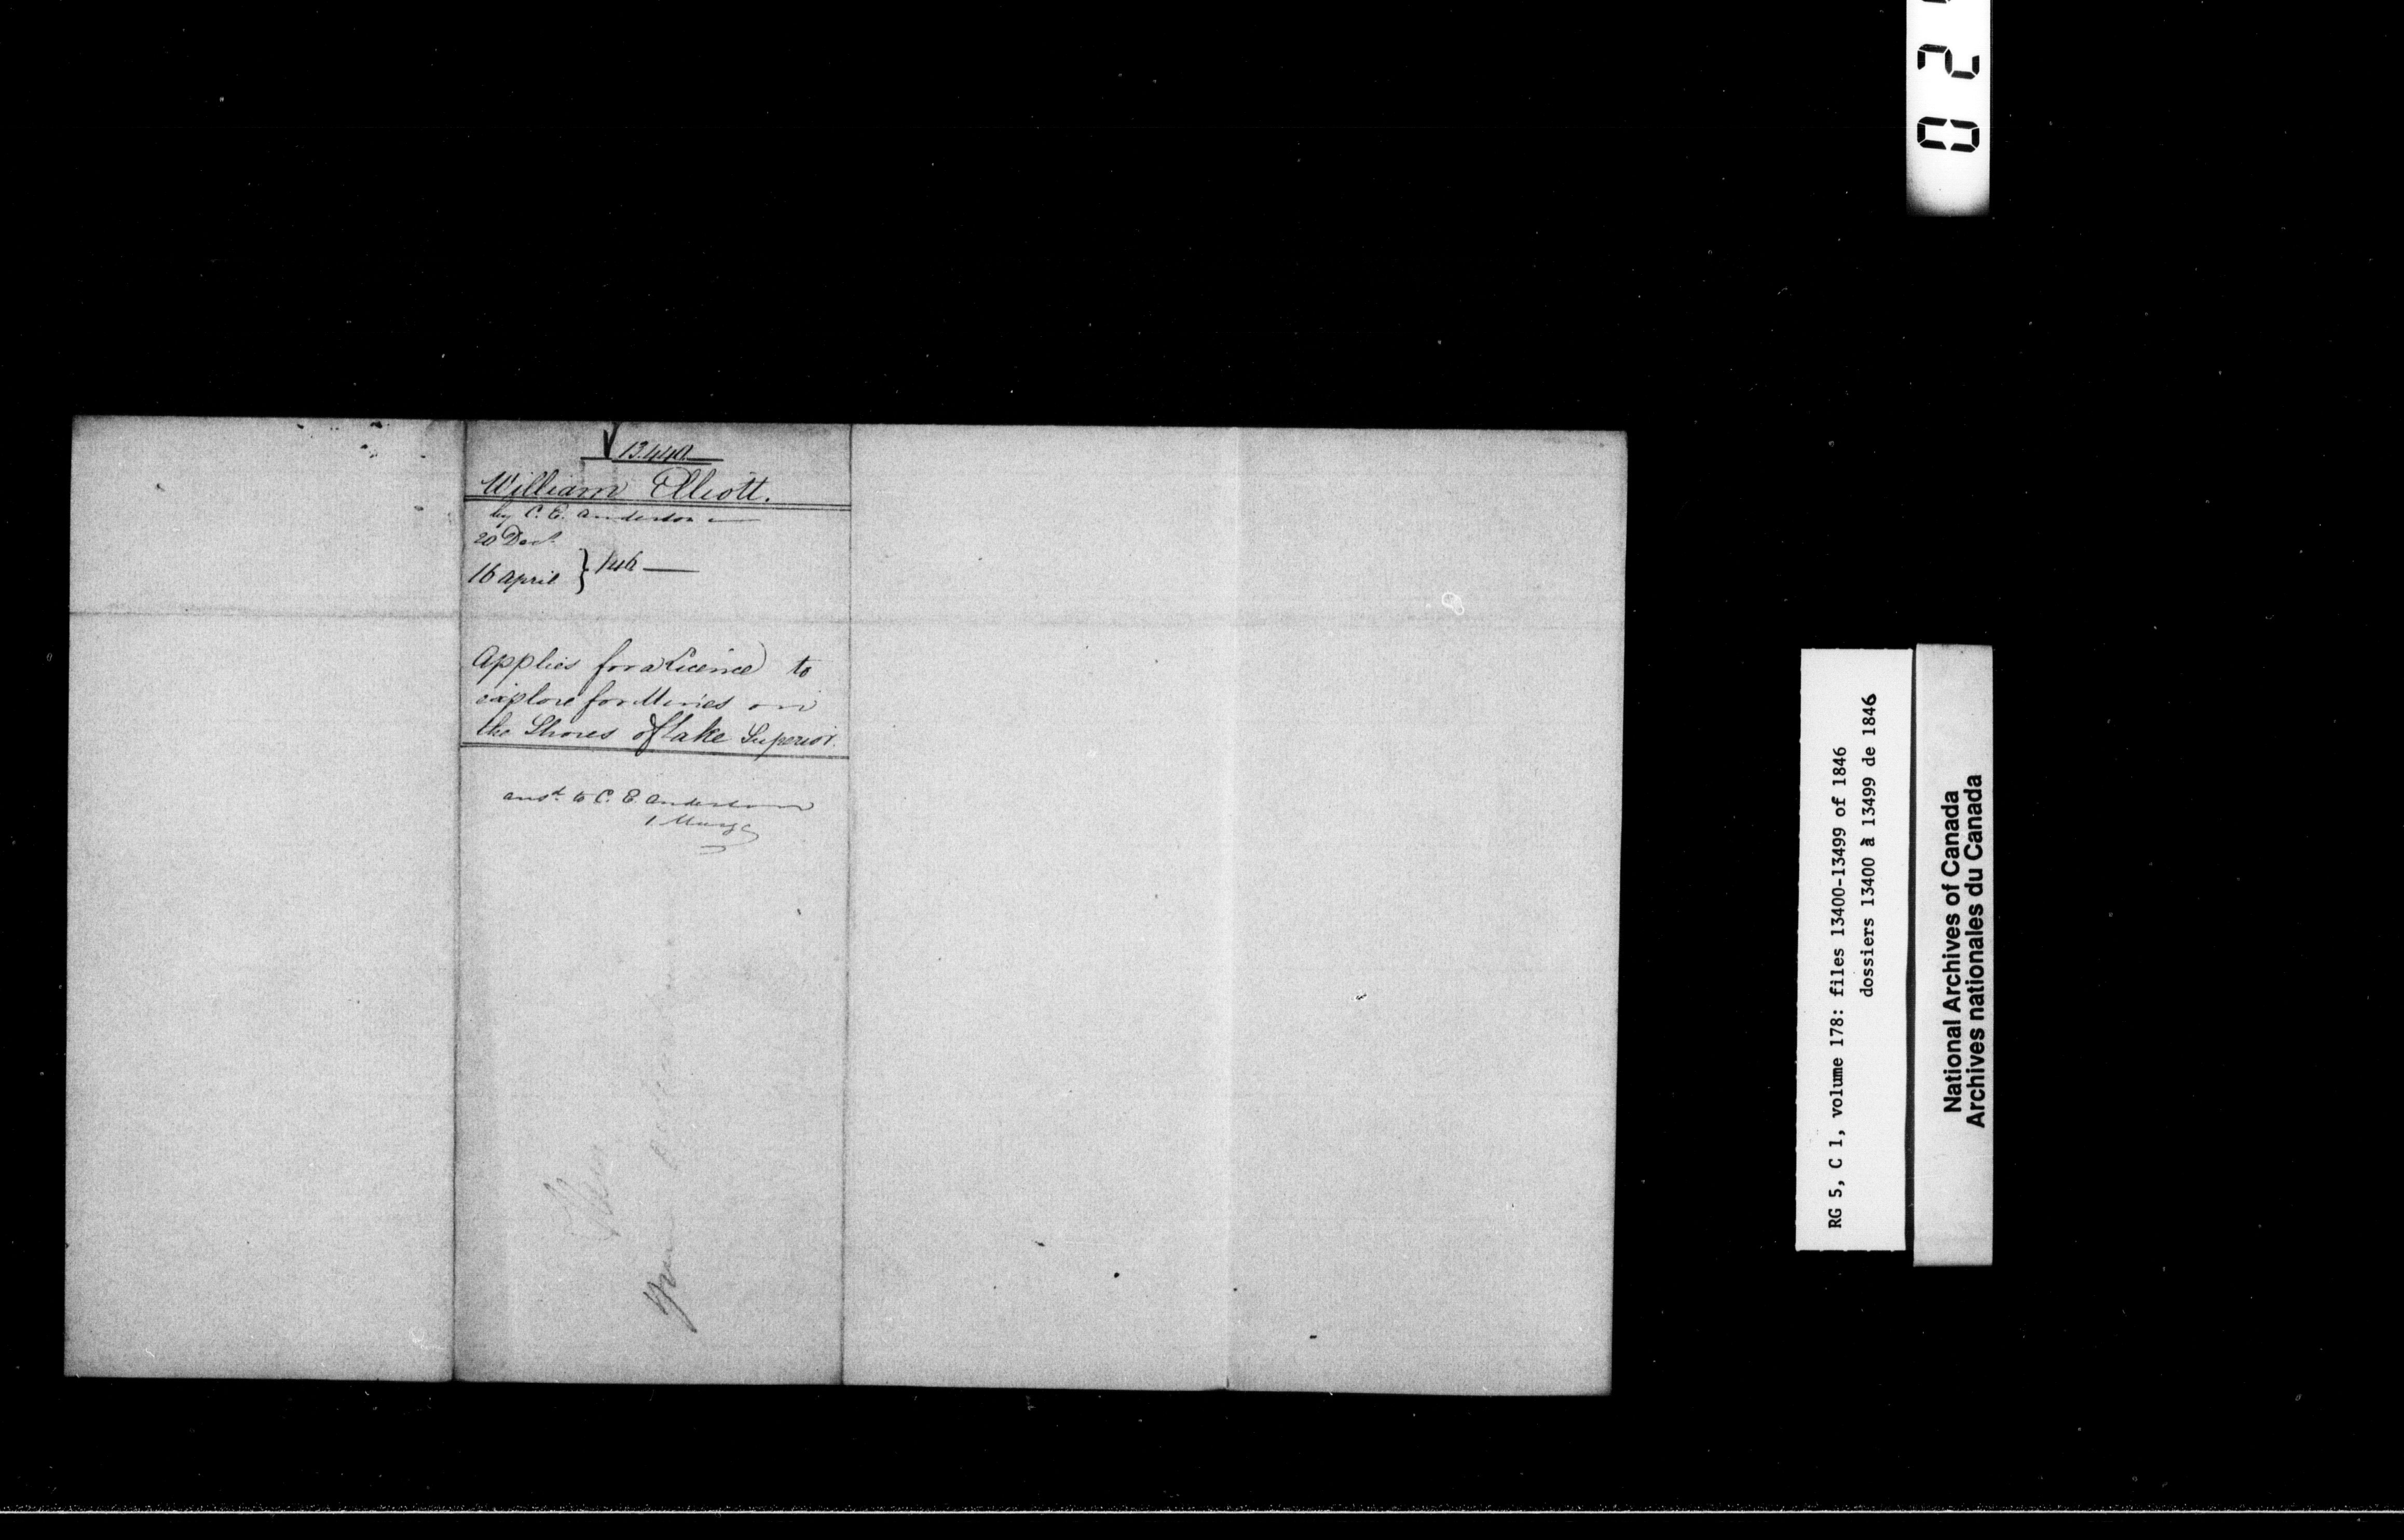 13.440
William Elliott.
by C. E. Anderson
20 Decr.
16 April } 1846
Applies for a Licence to
explore for Mines on
the Shores of Lake Superior.
ansd. to C. E. Anderson
RG 5, C 1, volume 178: files 13400-13499 of 1846
dossiers 13400 à 13499 de 1846
National Archives of Canada
Archives nationales du Canada
0 2